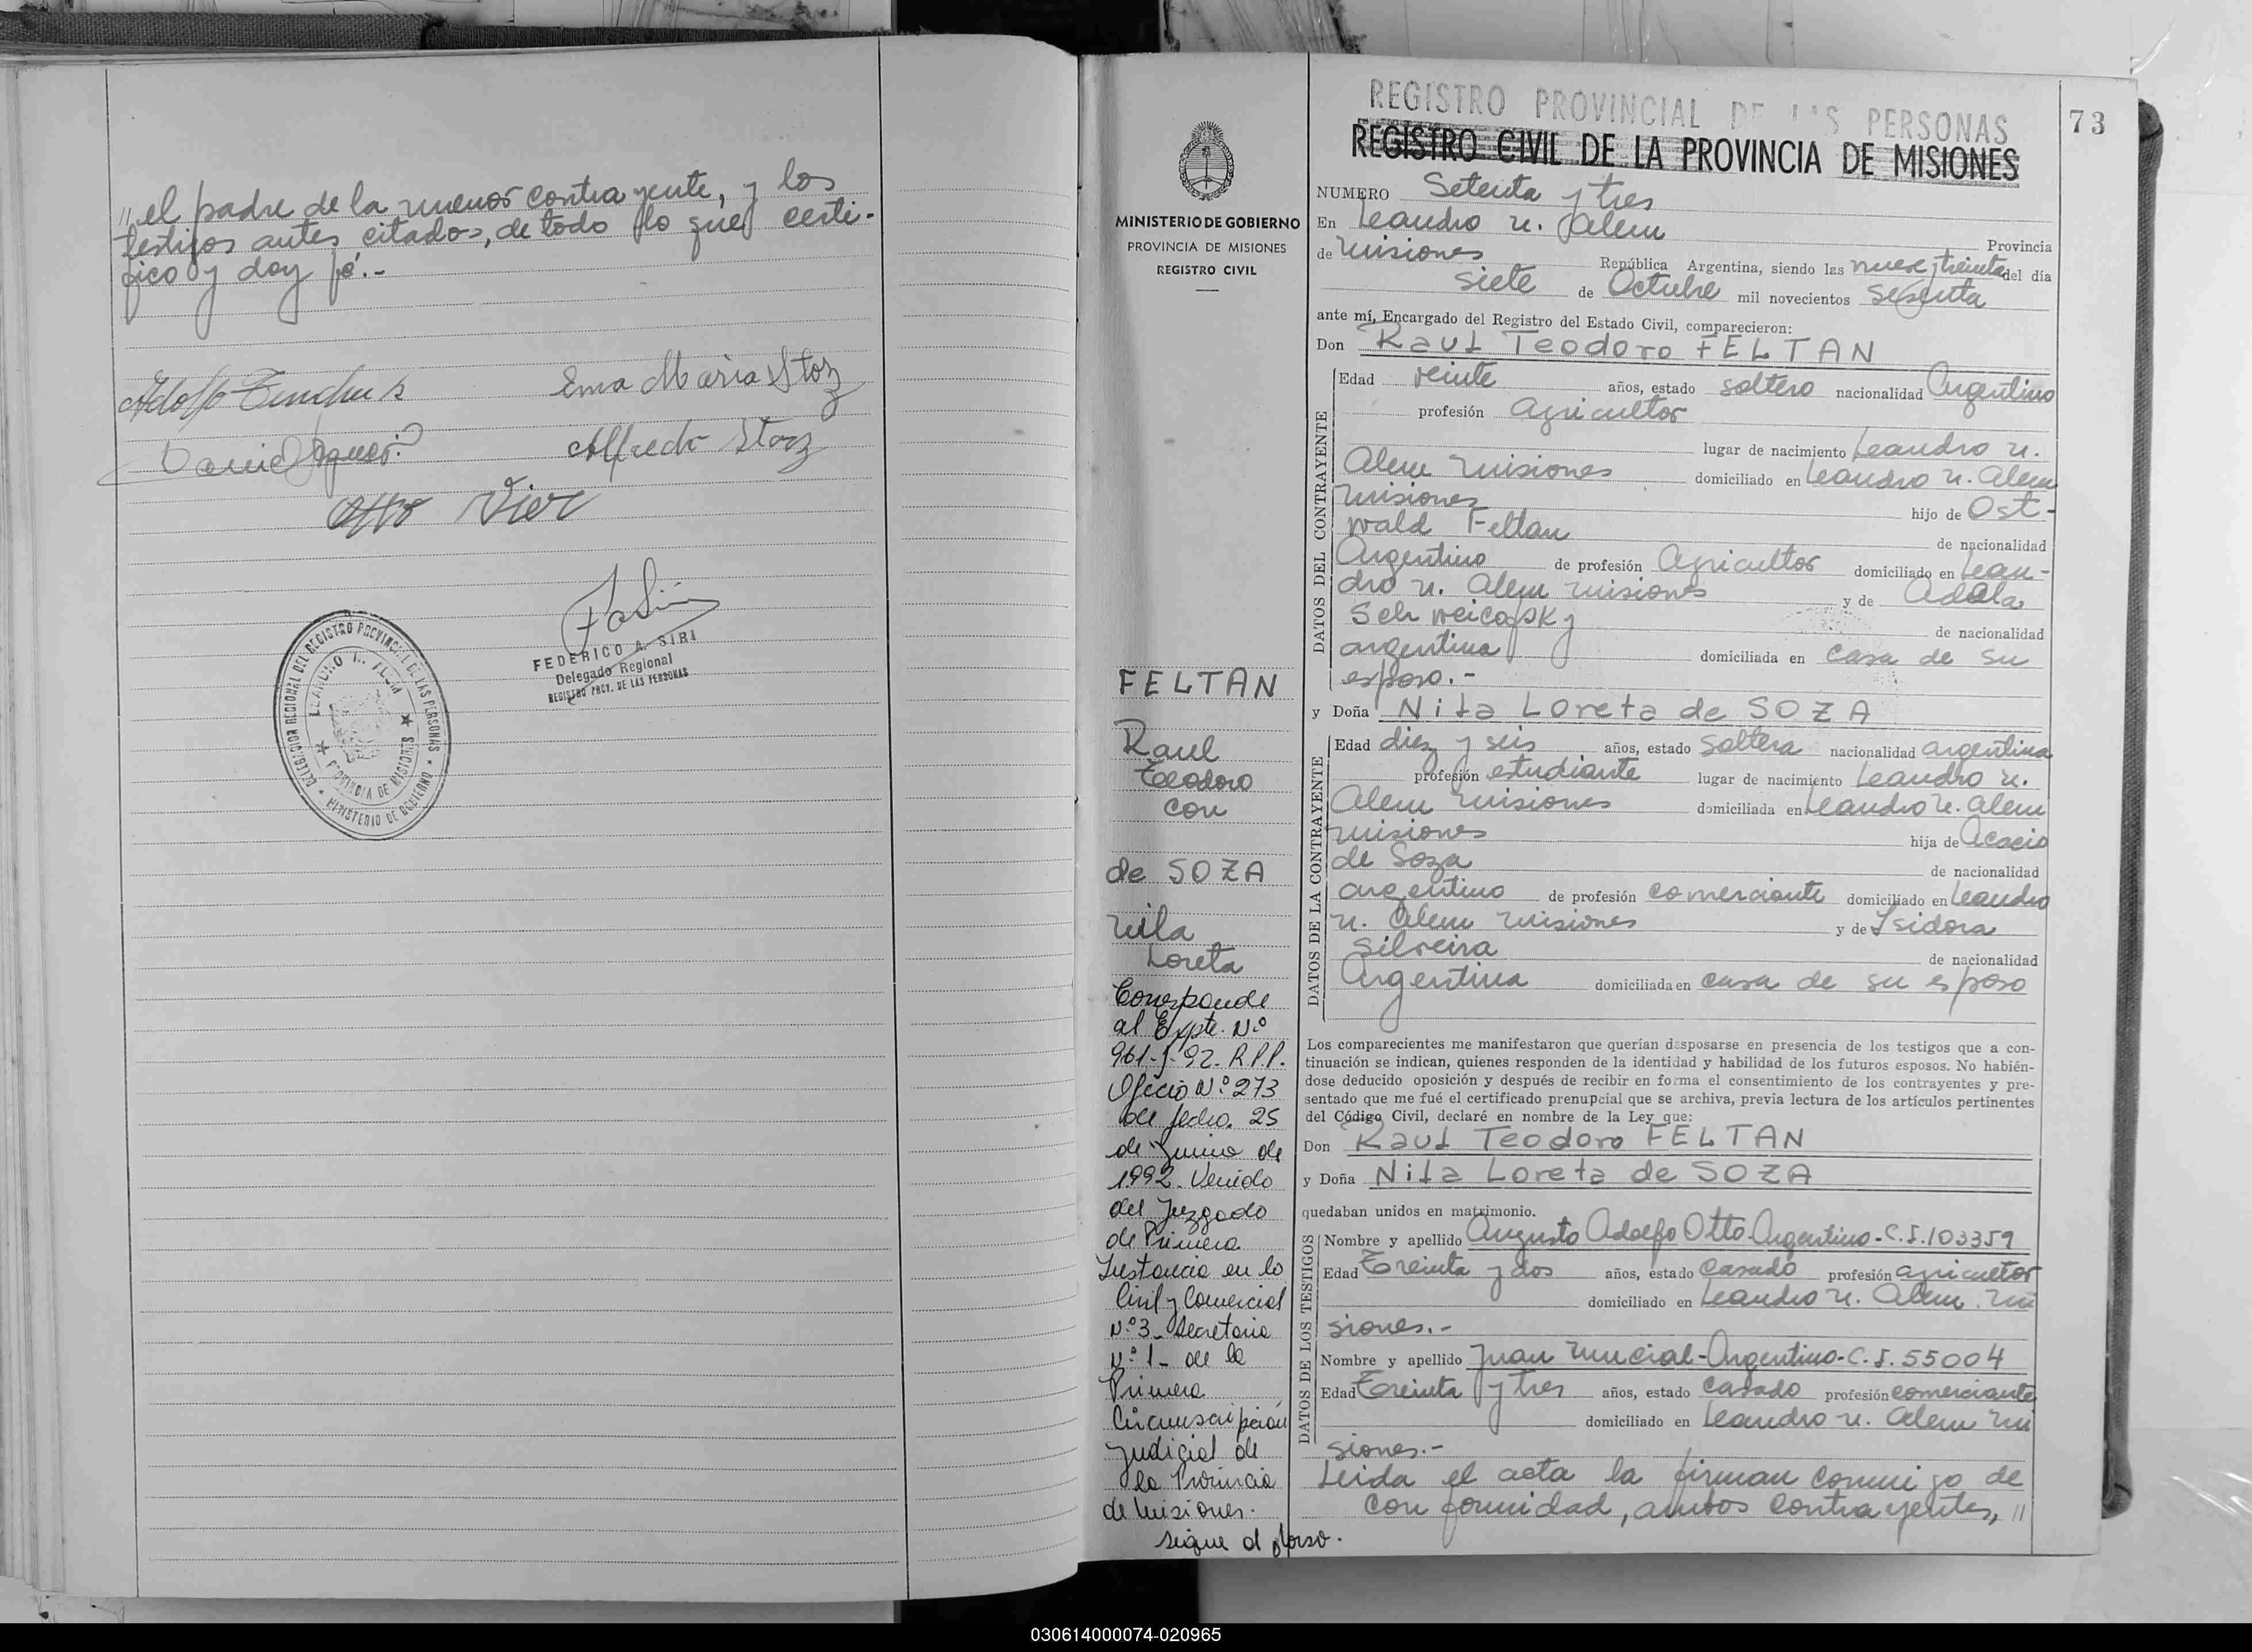 " el padre de la menor contrayente, y los
testigos antes citados, de todo lo que certi-
fico y doy fé.-
Adolfo
Ema Maria Storz
Daniel
Alfredo Storz
Otto Vier
FEDERICO A. SIRI
Delegado Regional
REGISTRO PROV. DE LAS PERSONAS
DELEGACION REGIONAL DEL REGISTRO PROVINCIAL DE LAS PERSONAS
MINISTERIO DE GOBIERNO
LEANDRO N. ALEM
PROVINCIA DE MISIONES
MINISTERIO DE GOBIERNO
PROVINCIA DE MISIONES
REGISTRO CIVIL
FELTAN
Raul
Teodoro
con
de SOZA
Nila
Loreta
Corresponde
al Expte. Nº
961-J-92. R.P.P.
Oficio Nº 273
de fecha 25
de Junio de
1992. Venido
del Juzgado
de Primera
Instancia en lo
Civil y Comercial
Nº 3 - Secretaria
Nº 1 - de la
Primera
Circunscripción
Judicial de
la Provincia
de Misiones.
sigue al dorso.
73
REGISTRO PROVINCIAL DE LAS PERSONAS
REGISTRO CIVIL DE LA PROVINCIA DE MISIONES
NUMERO Setenta y tres
En Leandro N. Alem Provincia
de Misiones República Argentina, siendo las nueve y treinta del día
siete de Octubre mil novecientos sesenta
ante mí, Encargado del Registro del Estado Civil, comparecieron:
Don Raul Teodoro FELTAN
DATOS DEL CONTRAYENTE
Edad veinte años, estado soltero nacionalidad Argentino
profesión Agricultor
lugar de nacimiento Leandro N.
Alem Misiones domiciliado en Leandro N. Alem
Misiones hijo de Ost-
wald Feltan de nacionalidad
Argentino de profesión Agricultor domiciliado en Lean-
dro N. Alem Misiones y de Adela
de nacionalidad
argentina domiciliada en casa de su
esposo.-
y Doña Nila Loreta de SOZA
DATOS DE LA CONTRAYENTE
Edad diez y seis años, estado soltera nacionalidad argentina
profesión estudiante lugar de nacimiento Leandro N.
Alem Misiones domiciliada en Leandro N. Alem
Misiones hija de Acacio
de Soza de nacionalidad
argentino de profesión comerciante domiciliado en Leandro
N. Alem Misiones y de Isidora
Silveira de nacionalidad
Argentina domiciliada en casa de su esposo
Los comparecientes me manifestaron que querían desposarse en presencia de los testigos que a con-
tinuación se indican, quienes responden de la identidad y habilidad de los futuros esposos. No habién-
dose deducido oposición y después de recibir en forma el consentimiento de los contrayentes y pre-
sentado que me fué el certificado prenupcial que se archiva, previa lectura de los artículos pertinentes
del Código Civil, declaré en nombre de la Ley que:
Don Raul Teodoro FELTAN
y Doña Nila Loreta de SOZA
quedaban unidos en matrimonio.
DATOS DE LOS TESTIGOS
Nombre y apellido Augusto Adolfo Otto-Argentino-C.I.103359
Edad Treinta y dos años, estado casado profesión agricultor
domiciliado en Leandro N. Alem. Mi
siones.-
Nombre y apellido Juan Mucial-Argentino-C.I.55004
Edad Treinta y tres años, estado casado profesión comerciante
domiciliado en Leandro N. Alem Mi
siones.-
Leida el acta la firman conmigo de
conformidad, ambos contrayentes, "
030614000074-020965